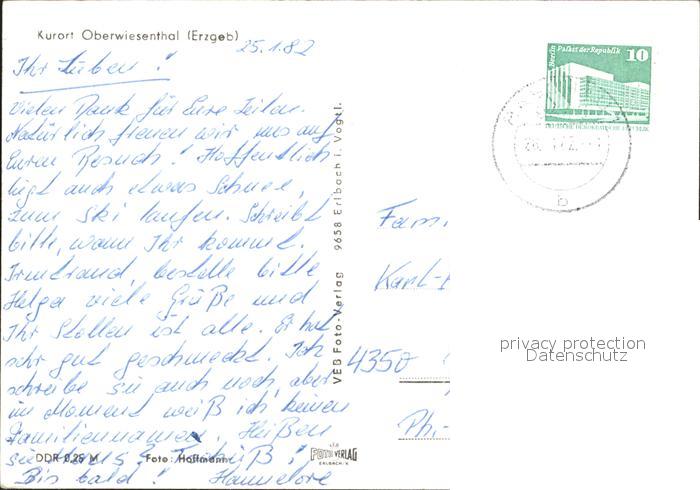 Kurort Oberwiesenthal (Erzgeb)
25.1.82
Ihr Lieben!
Vielen Dank für Eure Zeilen.
Natürlich freuen wir uns auf
Euren Besuch! Hoffentlich
liegt auch etwas Schnee,
zum Ski laufen. Schreibt
bitte, wann Ihr kommt.
Irmtraud, bestelle bitte
Helga viele Grüße und
Ihr Stollen ist alle. Er hat
sehr gut geschmeckt. Ich
schreibe sie auch noch, aber
im Moment weiß ich keinen
Familiennamen. Heißen
sie
Bis bald! Hannelore
DDR 0,25 M Foto: Hoffmann
VEB Foto-Verlag 9658 Erlbach i. Vogtl.
FOTO VERLAG
ERLBACH/V.
Berlin Palast der Republik
10
DEUTSCHE DEMOKRATISCHE REPUBLIK
b
Fam.
Karl-
4350
privacy protection
Datenschutz